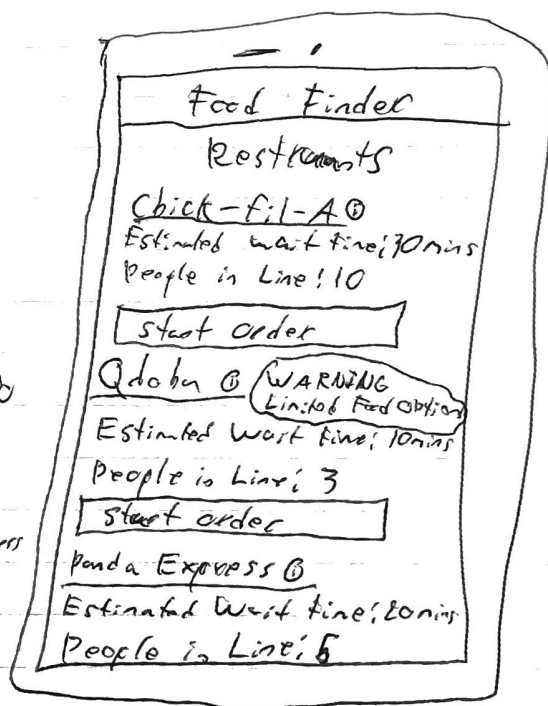 Food Finder
Restraunts
Chick-fil-A ⓘ
Estimated wait time: 30 mins
People in Line: 10
start order
Qdoba ⓘ
WARNING
Limited Food option
Estimated Wait time: 10 mins
People in Line: 3
start order
Panda Express ⓘ
Estimated Wait time: 20 mins
People in Line: 5